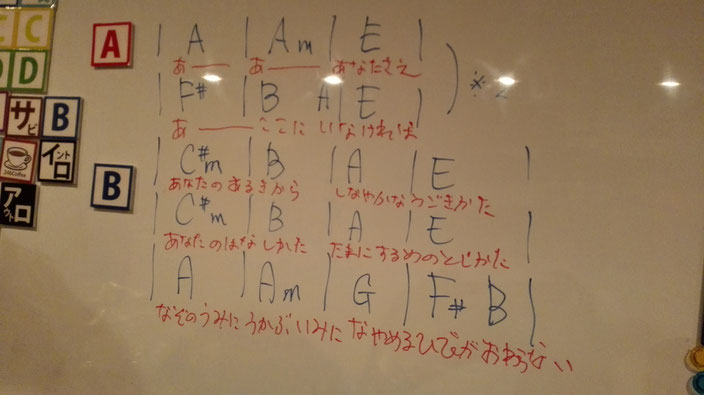 A
| A | Am | E |
あ―― あ―― あなたさえ
| F# | B A | E | ※2
あ―― ここに いなければ
B
| C#m | B | A | E |
あなたのあるきかた しなやかなうごきかた
| C#m | B | A | E |
あなたのはなしかた たまにするめのとじかた
| A | Am | G | F# B |
なぞのうみに うかぶいみに なやめるひびが おわらない
C
D
サビ B
246Coffee イントロ
アウトロ